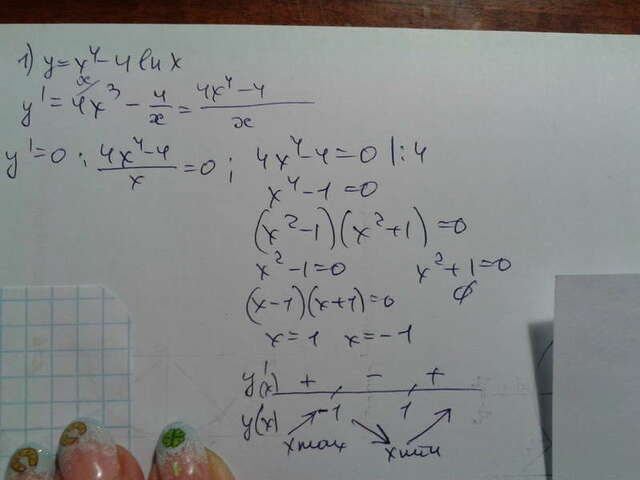 1) y = x⁴ - 4 ln x
y' = 4x³ - 4/x = (4x⁴ - 4)/x
y' = 0 ; (4x⁴ - 4)/x = 0 ; 4x⁴ - 4 = 0 | : 4
x⁴ - 1 = 0
(x² - 1)(x² + 1) = 0
x² - 1 = 0 x² + 1 = 0
∅
(x - 1)(x + 1) = 0
x = 1 x = -1
y'(x) + - +
y(x) ↗ -1 ↘ 1 ↗
xmax xmin